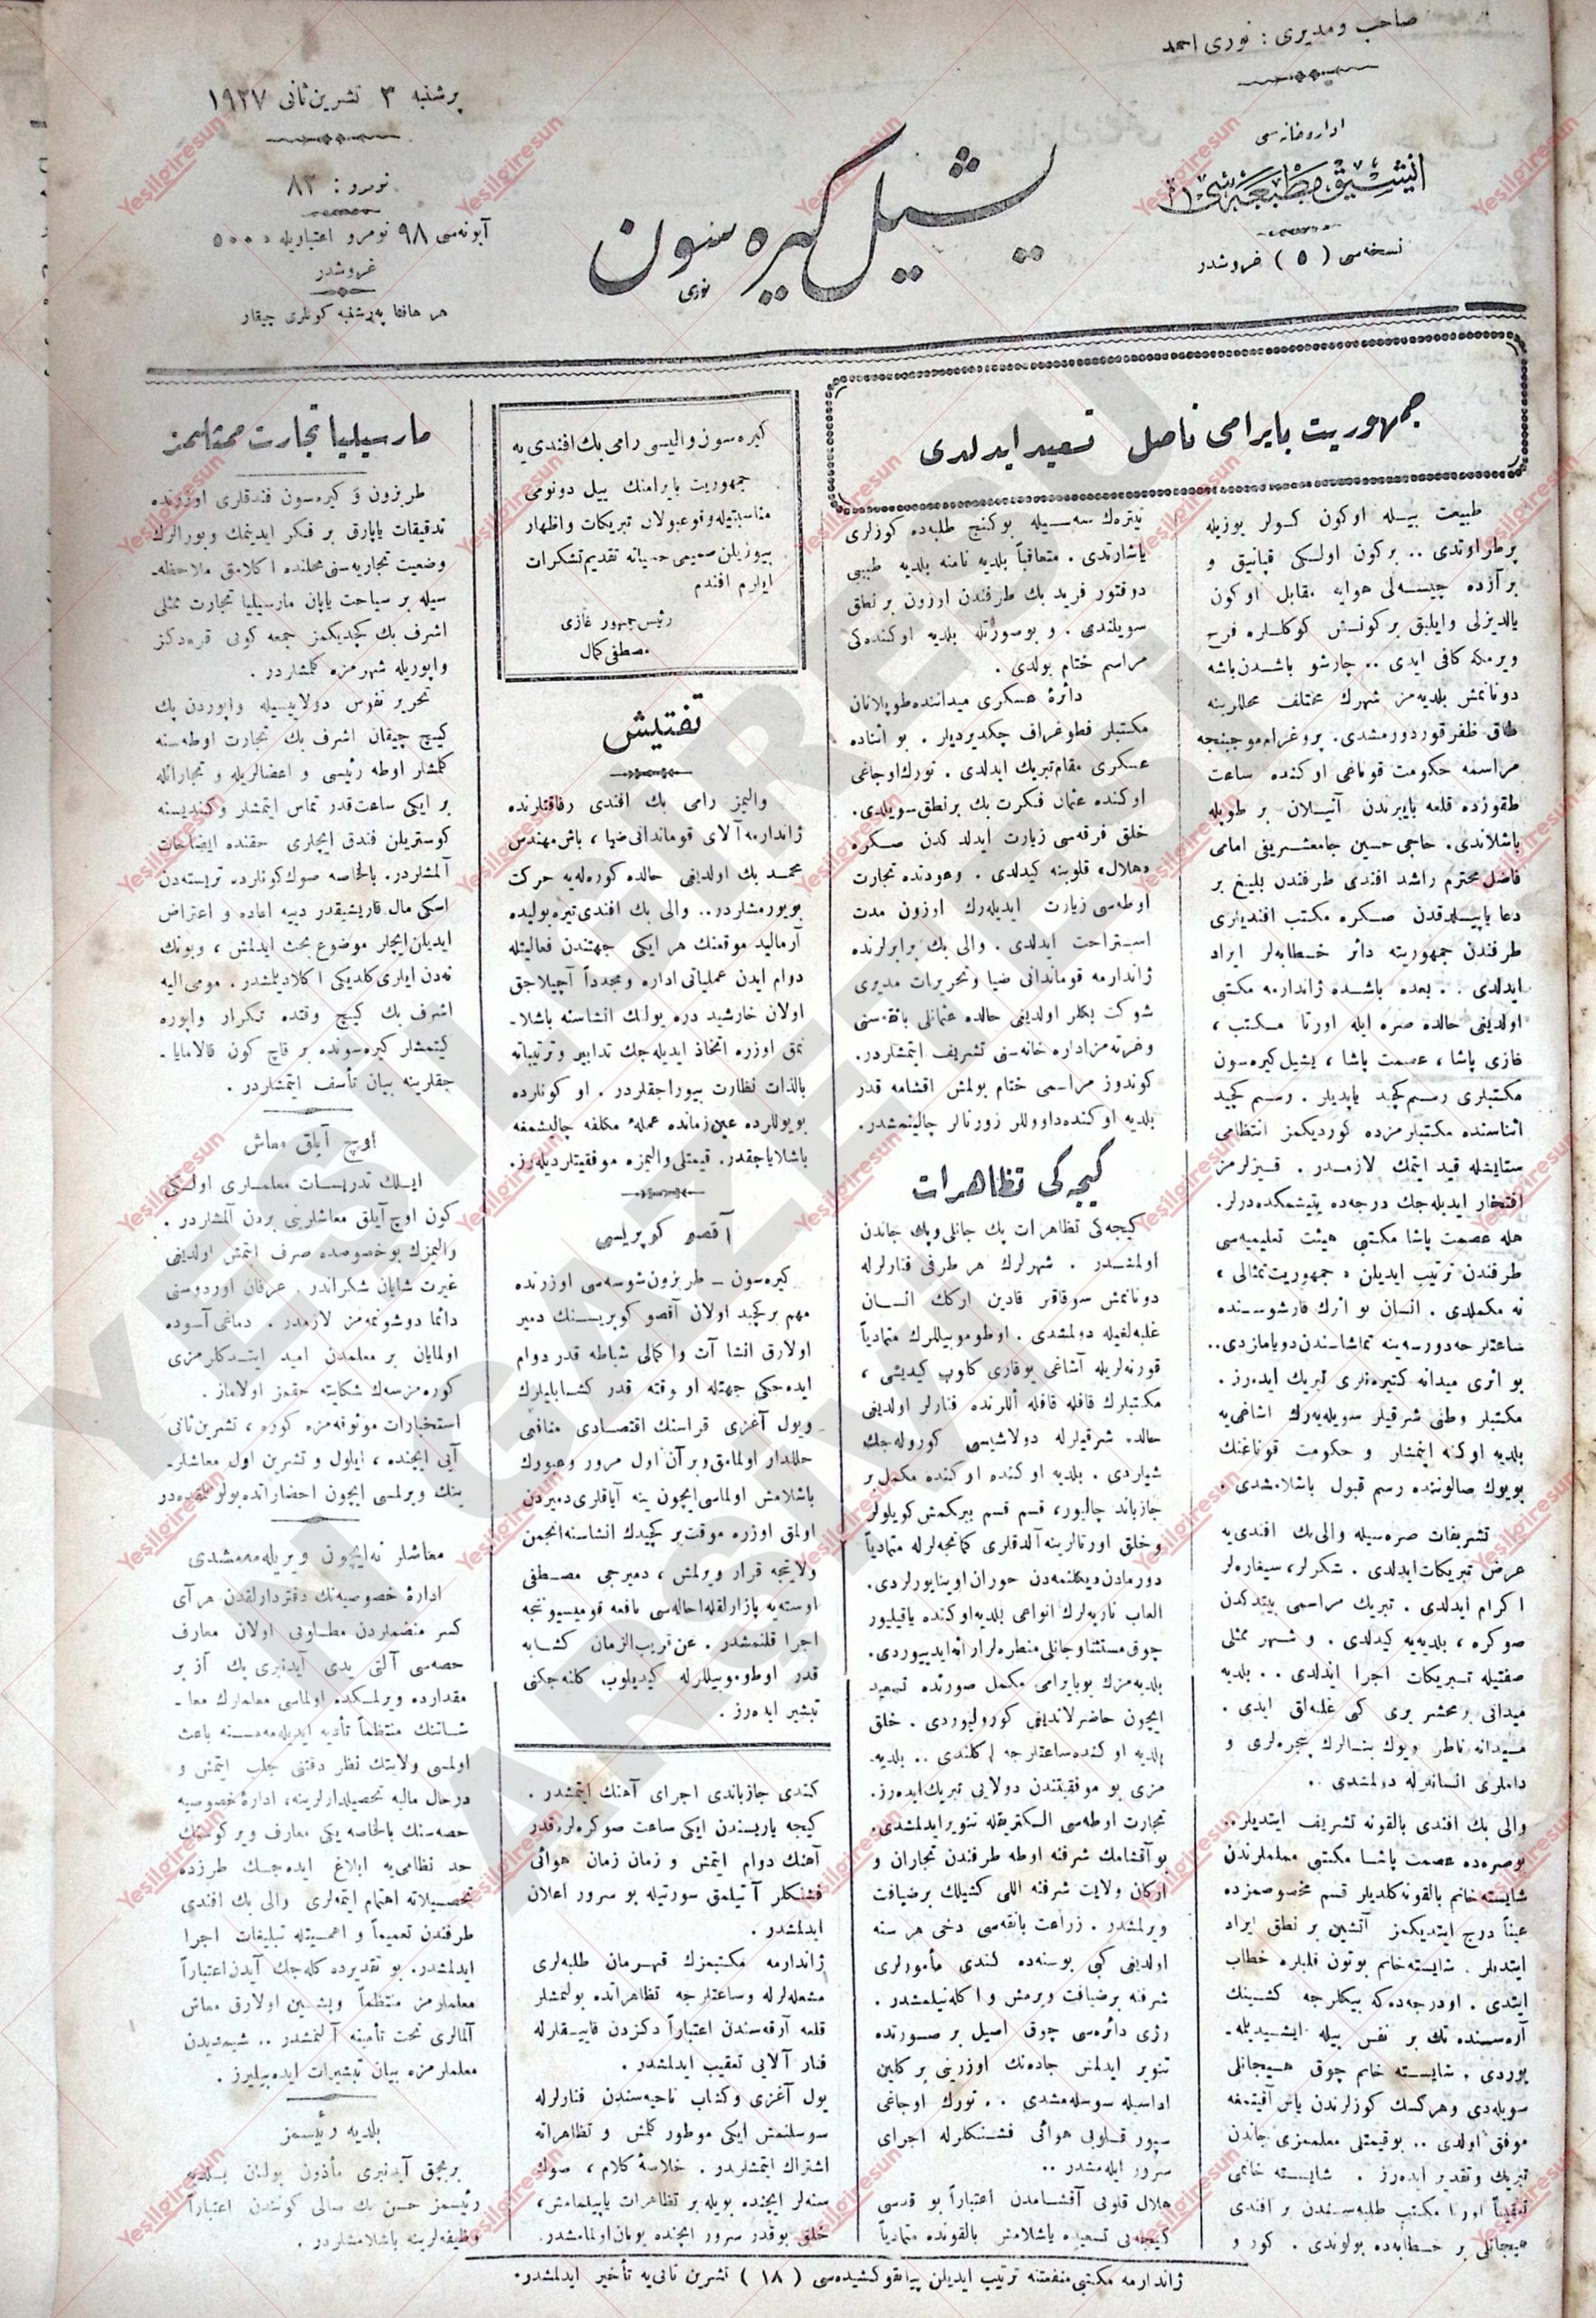 صاحب ومديرى : نورى احمد
اداره‌خانه‌سى
ايشيق مطبعه‌سى
نسخه‌سى ( ٥ ) غروشدر
يشيل كيره سون
نورى
پرشنبه ٣ تشرين ثانى ١٩٢٧
نومرو : ٨٣
آبونه‌سى ٩٨ نومرو اعتباريله ٥٠٠
غروشدر
هر هفته پرشنبه كونلرى چيقار
جمهوريت بايرامى ناصل تسعيد ايدلدى
طبيعت بيله او كون كولر يوزيله
ويرمكه كافى ايدى .. چارشو باشدن باشه
دونانمش بلديه‌مز شهرك مختلف محللرينه
طاق ظفر قوردورمشدى. پروغرام موجبنجه
مراسمه حكومت قوناغى اوكنده ساعت
باشلاندى. حاجى حسين جامع شريفى امامى
فاضل محترم راشد افندى طرفندن بليغ بر
دعا ياپيلدقدن صكره مكتب افنديلرى
طرفندن جمهوريته دائر خطابه‌لر ايراد
ايدلدى . . بعده باشده ژاندارمه مكتبى
اولديغى حالده صره ايله اورتا مكتب ،
غازى پاشا ، عصمت پاشا ، يشيل كيره‌سون
مكتبلرى رسم كچيد ياپديلر . رسم كچيد
اثناسنده مكتبلرمزده كورديكمز انتظامى
ستايشله قيد ايتمك لازمدر . قيزلرمز
افتخار ايديله‌جك درجه‌ده يتيشمكده‌درلر.
هله عصمت پاشا مكتبى هيئت تعليميه‌سى
طرفندن ترتيب ايديلن « جمهوريت تمثالى »
نه مكملدى . انسان بو اثرك قارشوسنده
بو اثرى ميدانه كتيرنلرى تبريك ايده‌رز .
مكتبلر وطنى شرقيلر سويليه‌رك اشاغى‌يه
بلديه اوكنه ايتمشلر و حكومت قوناغنك
بويوك صالوننده رسم قبول باشلامشدى .
تشريفات صره‌سيله والى بك افندى‌يه
عرض تبريكات ايدلدى . شكرلر، سيغاره‌لر
اكرام ايدلدى . تبريك مراسمى بيتدكدن
صوكره ، بلديه‌يه كيدلدى . و شهر ممثلى
صفتيله تبريكات اجرا ايدلدى . . بلديه
ميدانى بر محشر يرى كى غلبه‌لق ايدى .
ميدانه ناظر بويوك بنالرك پنجره‌لرى و
داملرى انسانلرله دولمشدى ..
والى بك افندى بالقونه تشريف ايتديلر..
بوصره‌ده عصمت پاشا مكتبى معلملرندن
شايسته خانم بالقونه كلديلر قسم مخصوصمزده
عيناً درج ايتديكمز آتشين بر نطق ايراد
ايتديلر . شايسته خانم بوتون قلبلره خطاب
ايتدى . اودرجه‌ده كه بيكلرجه كشينك
آره‌سنده تك بر نفس بيله ايشيديلمه‌-
يوردى . شايسته خانم چوق هيجانلى
سويله‌دى و هركسك كوزلرندن ياش آقيتمغه
موفق اولدى .. بو قيمتلى معلممزى جاندن
تبريك و تقدير ايده‌رز . شايسته خانمى
تعقيباً اورتا مكتب طلبه‌سندن بر افندى
هيجانلى بر خطابه‌ده بولوندى . كور و
تيتره‌ك سسيله بو كنج طلبه‌ده كوزلرى
ياشارتدى . متعاقباً بلديه نامنه بلديه طبيبى
دوقتور فريد بك طرفندن اوزون بر نطق
سويلندى . و بوصورتله بلديه اوكنده‌كى
مراسم ختام بولدى .
دائرۀ عسكرى ميداننده طوپلانان
مكتبلر فطوغراف چكديرديلر . بو اثناده
عسكرى مقام تبريك ايدلدى . تورك اوجاغى
اوكنده عثمان فكرت بك بر نطق سويلدى.
خلق فرقه‌سى زيارت ايدلدكدن صكره
«هلال» قلوبنه كيدلدى . وعودتده تجارت
اوطه‌سى زيارت ايديله‌رك اوزون مدت
استراحت ايدلدى . والى بك برابرلرنده
ژاندارمه قوماندانى ضيا وتحريرات مديرى
شوكت بكلر اولديغى حالده عثمانلى بانقه‌سنى
وغزته‌مز اداره خانه‌سنى تشريف ايتمشلردر.
كوندوز مراسمى ختام بولمش اقشامه قدر
بلديه اوكنده داووللر زورنالر چالينمشدر.
كيجه كى تظاهرات
كيجه‌كى تظاهرات پك جانلى وپك جاندن
اولمشدر . شهرلرك هر طرفى فنارلرله
دونانمش سوقاقلر قادين اركك انسان
غلبه‌لغيله دولمشدى . اوطوموبيللرك متمادياً
قورنه‌لريله آشاغى يوقارى كلوب كيديشى ،
مكتبلرك قافله قافله اللرنده فنارلر اولديغى
حالده شرقيلرله دولاشيشى كوروله‌جك
شيلردى . بلديه اوكنده اوكنده مكمل بر
جازباند چاليور، قسم قسم بيركمش كويلولر
وخلق اورتالرينه آلدقلرى كمانجه‌لرله متمادياً
دورمادن ديكلنمه‌دن حوران اوينايورلردى.
العاب ناريه‌لرك انواعى بلديه اوكنده ياقيليور
چوق مستثنا وجانلى منظره‌لر ارائه ايدييوردى.
بلديه‌مزك بو بايرامى مكمل صورتده تسعيد
ايچون حاضرلانديغى كورولويوردى . خلق
بلديه اوكنده ساعتلرجه اكلندى .. بلديه-
مزى بو موفقيتندن دولايى تبريك ايده‌رز.
تجارت اوطه‌سى الكتريقله تنوير ايدلمشدى.
بو آقشامك شرفنه اوطه طرفندن تجاران و
اركان ولايت شرفنه اللى كشيلك بر ضيافت
ويرلمشدر . زراعت بانقه‌سى دخى هر سنه
اولديغى كبى بوسنه‌ده كندى مأمورلرى
شرفنه بر ضيافت ويرمش و اكلنيلمشدر .
رژى دائره‌سى چوق اصيل بر صورتده
تنوير ايدلمش جاده‌نك اوزرينى بر كلين
اداسيله سوسله‌مشدى .. تورك اوجاغى
سپور قلوبى هوائى فشنكلرله اجراى
سرور ايله‌مشدر ..
هلال قلوبى آقشامدن اعتباراً بو قدسى
كيجه‌يى تسعيده باشلامش بالقونده متمادياً
كيره‌سون واليسى رامى بك افندى‌يه
جمهوريت بايرامنك ييل دونومى
مناسبتيله وقوعبولان تبريكات واظهار
بيوريلن صميمى حسياته تقديم تشكرات
ايلرم افندم
رئيس جمهور غازى
مصطفى كمال
تفتيش
واليمز رامى بك افندى رفاقتلرنده
ژاندارمه آلاى قوماندانى ضيا ، باش مهندس
محمد بك اولديغى حالده كوره‌له‌يه حركت
بويورمشلردر.. والى بك افندى تيره‌بوليده
آرماليد موقعنك هر ايكى جهتندن فعاليتله
دوام ايدن عملياتى اداره ومجدداً آچيلاجق
اولان خارشيد دره يولنك انشاسنه باشلا-
نمق اوزره اتخاذ ايديله‌جك تدابير وترتيباته
بالذات نظارت بيوراجقلردر . او كونلرده
بو يوللرده عين زمانده عملۀ مكلفه چاليشمغه
باشلاياجقدر. قيمتلى واليمزه موفقيتلر ديله‌رز.
آقصو كوپريسى
كيره‌سون ــ طربزون شوسه‌سى اوزرنده
مهم بر كچيد اولان آقصو كوپريسنك دمير
اولارق انشاآت واكمالى شباطه قدر دوام
ايده‌جكى جهتله او وقته قدر كشابليلرك
ويول آغزى قراسنك اقتصادى منافعى
خللدار اولمامق وبر آن اول مرور وعبورك
باشلامش اولماسى ايچون ينه آياقلرى دميردن
اولمق اوزره موقت بر كچيدك انشاسنه انجمن
ولايتجه قرار ويرلمش ، دميرجى مصطفى
اوسته‌يه پازارلقله احاله‌سى نافعه قوميسيونجه
اجرا قلنمشدر . عن قريب الزمان كشابه
قدر اوطوموبيللرله كيديلوب كلنه‌جكنى
تبشير ايده‌رز .
كندى جازباندى اجراى آهنك ايتمشدر .
كيجه ياريسندن ايكى ساعت صوكره‌لره قدر
آهنك دوام ايتمش و زمان زمان هوائى
فشنكلر آتيلمق سورتيله بو سرور اعلان
ايدلمشدر .
ژاندارمه مكتبمزك قهرمان طلبه‌لرى
مشعله‌لرله وساعتلرجه تظاهراتده بولنمشلر
قلعه آرقه‌سندن اعتباراً دكزدن قاييقلرله
فنار آلايى تعقيب ايدلمشدر .
يول آغزى وكشاب ناحيه‌سندن فنارلرله
سوسلنمش ايكى موطور كلمش و تظاهراته
اشتراك ايتمشلردر . خلاصۀ كلام ، صوك
سنه‌لر ايچنده بويله بر تظاهرات ياپيلمامش،
خلق بوقدر سرور ايچنده بومان اولمامشدر.
مارسيليا تجارت ممثلمز
طربزون و كيره‌سون فندقلرى اوزرنده
تدقيقات ياپارق بر فكر ايدينمك وبورالرك
وضعيت تجاريه‌سنى محلنده اكلامق ملاحظه-
سيله بر سياحت ياپان مارسيليا تجارت ممثلى
اشرف بك كچديكمز جمعه كونى قره‌دكز
واپوريله شهرمزه كلمشلردر .
تحرير نفوس دولاييسيله واپوردن پك
كيچ چيقان اشرف بك تجارت اوطه‌سنه
كلمشلر اوطه رئيسى و اعضالريله و تجارانله
بر ايكى ساعت قدر تماس ايتمشلر وكنديسنه
كوستريلن فندق ايچلرى حقنده ايضاحات
آلمشلردر. بالخاصه صوك كونلرده تريسته‌دن
اسكى مال قاريشيقدر دييه اعاده و اعتراض
ايديلن ايچلر موضوع بحث ايدلمش ، وبونك
نه‌دن ايلرى كلديكى اكلاديلمشدر. مومى اليه
اشرف بك كيچ وقتده تكرار واپوره
كيتمشلر كيره‌سونده بر قاچ كون قالامايا-
جقلرينه بيان تأسف ايتمشلردر .
اوچ آيلق معاش
ايلك تدريسات معلملرى اولكى
كون اوچ آيلق معاشلرينى بردن آلمشلردر .
واليمزك بو خصوصده صرف ايتمش اولديغى
غيرت شايان شكراندر . عرفان اوردوسنى
دائما دوشونمه‌مز لازمدر . دماغى آسوده
اولمايان بر معلمدن اميد ايتدكلرمزى
كوره‌مزسه‌ك شكايته حقمز اولاماز .
استخبارات موثوقه‌مزه كوره ، تشرين ثانى
آيى ايچنده ، ايلول و تشرين اول معاشلر-
ينك ويرلمسى ايچون احضاراتده بولونلمقده‌در
معاشلر نه‌ايچون ويريله‌مه‌مشدى
ادارۀ خصوصيه‌نك دفتردارلقدن هر آى
كسر منضملردن مطلوبى اولان معارف
حصه‌سى آلتى يدى آيدنبرى پك آز بر
مقدارده ويرلمكده اولماسى معلملرك معا-
شاتنك منتظماً تأديه ايديله‌مه‌مسنه باعث
اولمسى ولايتك نظر دقتنى جلب ايتمش و
درحال ماليه تحصيلدارلرينه، ادارۀ خصوصيه
حصه‌سنك بالخاصه يكى معارف ويركوسنك
حد نظامى‌يه ابلاغ ايده‌جك طرزده
تحصيلاته اهتمام ايتمه‌لرى والى بك افندى
طرفندن تعميماً و اهميتله تبليغات اجرا
ايدلمشدر. بو تقديرده كله‌جك آيدن اعتباراً
معلملرمز منتظماً وپشين اولارق معاش
آلمالرى تحت تأمينه آلنمشدر .. شيمديدن
معلملرمزه بيان تبشيرات ايده‌بيليرز .
بلديه رئيسمز
بر بچق آيدنبرى مأذون بولنان بلديه
رئيسمز حسن بك صالى كونندن اعتباراً
وظيفه‌لرينه باشلامشلردر .
ژاندارمه مكتبى منفعتنه ترتيب ايديلن پيانقو كشيده‌سى ( ١٨ ) تشرين ثانى‌يه تأخير ايدلمشدر.
YEŞİLGİRESUN GAZETESİ ARŞİVİ
Yeşilgiresun